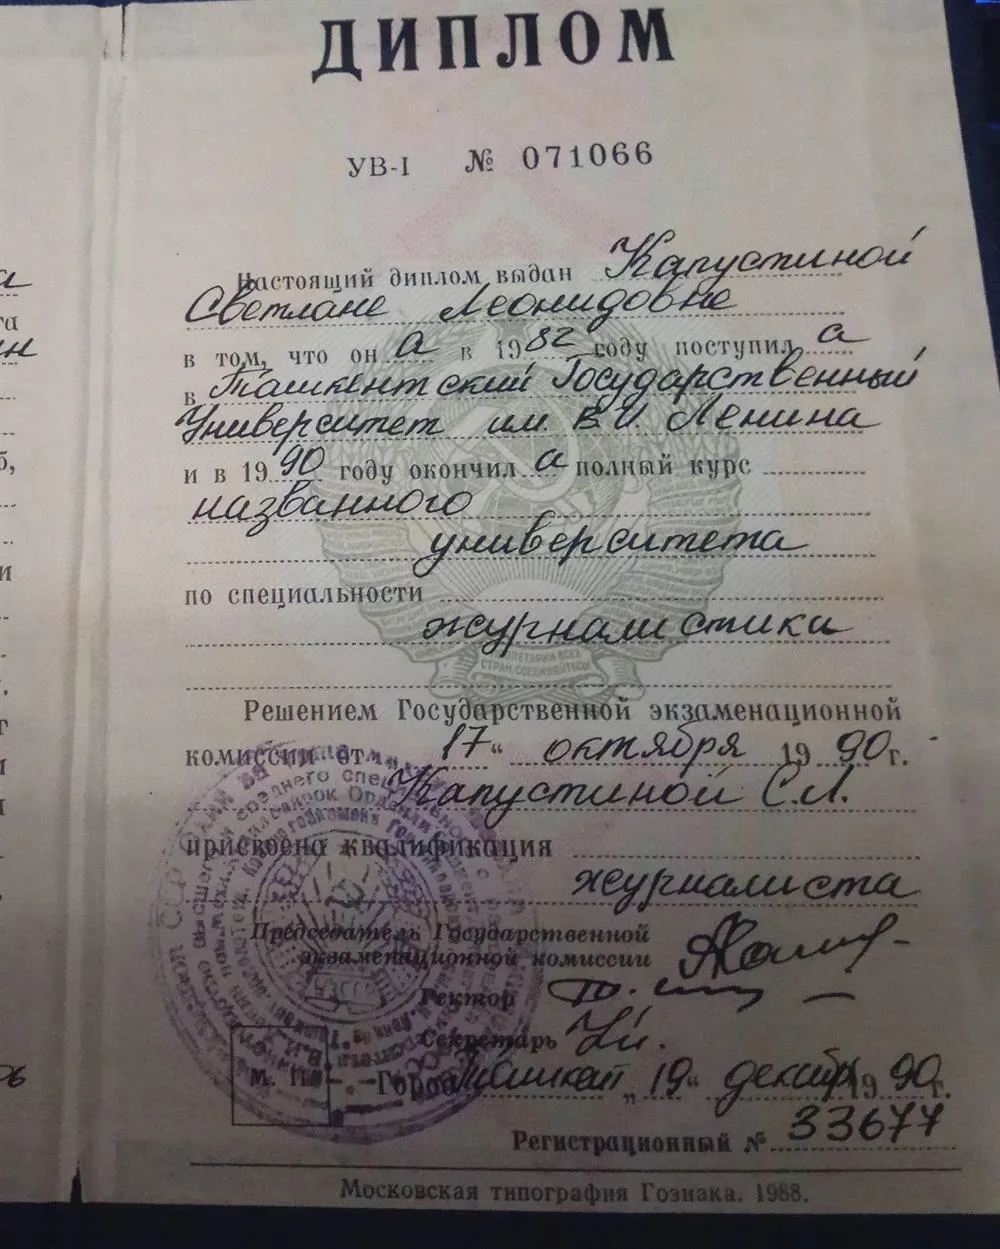 ДИПЛОМ
УВ-I № 071066
Настоящий диплом выдан Капустиной
Светлане Леонидовне
в том, что он а в 1982 году поступил а
в Ташкентский Государственный
Университет им. В.И. Ленина
и в 1990 году окончил а полный курс
названного
университета
по специальности
журналистика
ПРОЛЕТАРИИ ВСЕХ
СТРАН, СОЕДИНЯЙТЕСЬ!
Решением Государственной экзаменационной
комиссии от 17 " октября 1990 г.
Капустиной С.Л.
присвоена квалификация
журналиста
Председатель Государственной
экзаменационной комиссии
Ректор
Секретарь
М. П. Город Ташкент „ 19 " декабр 1990 г.
Регистрационный № 33677
Московская типография Гознака. 1988.